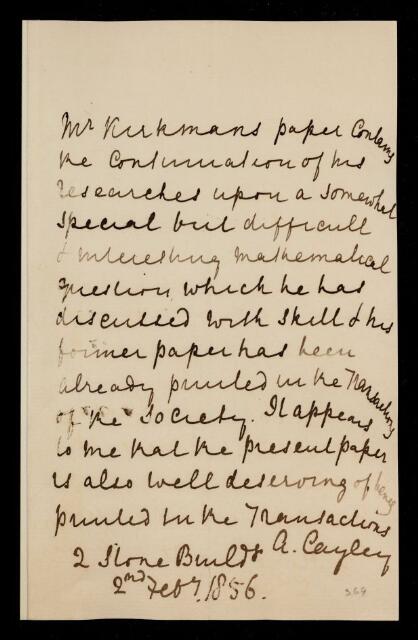 Mr Kirkmans paper contains
the continuation of his
researches upon a somewhat
special but difficult
& interesting mathematical
question which he has
discussed with skill & his
former paper has been
already printed in the Transactions
of the Society. It appears
to me that the present paper
is also well deserving of being
printed in the Transactions
A. Cayley
2 Stone Buildgs
2nd Feby. 1856.
369